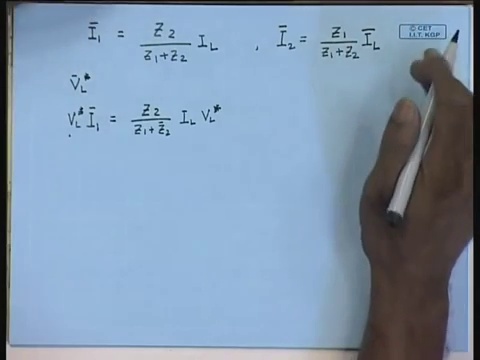 Ī₁ = Z₂ / (Z₁+Z₂) I_L , Ī₂ = Z₁ / (Z₁+Z₂) Ī_L
© CET
I.I.T. KGP
V̄_L*
V_L* Ī₁ = Z₂ / (Z₁+Z̄₂) I_L V_L*